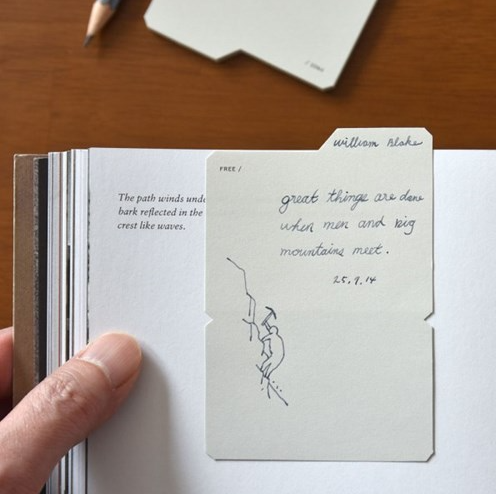 william Blake
FREE /
great things are done
when men and big
mountains meet.
25.9.14
The path winds unde
bark reflected in the
crest like waves.